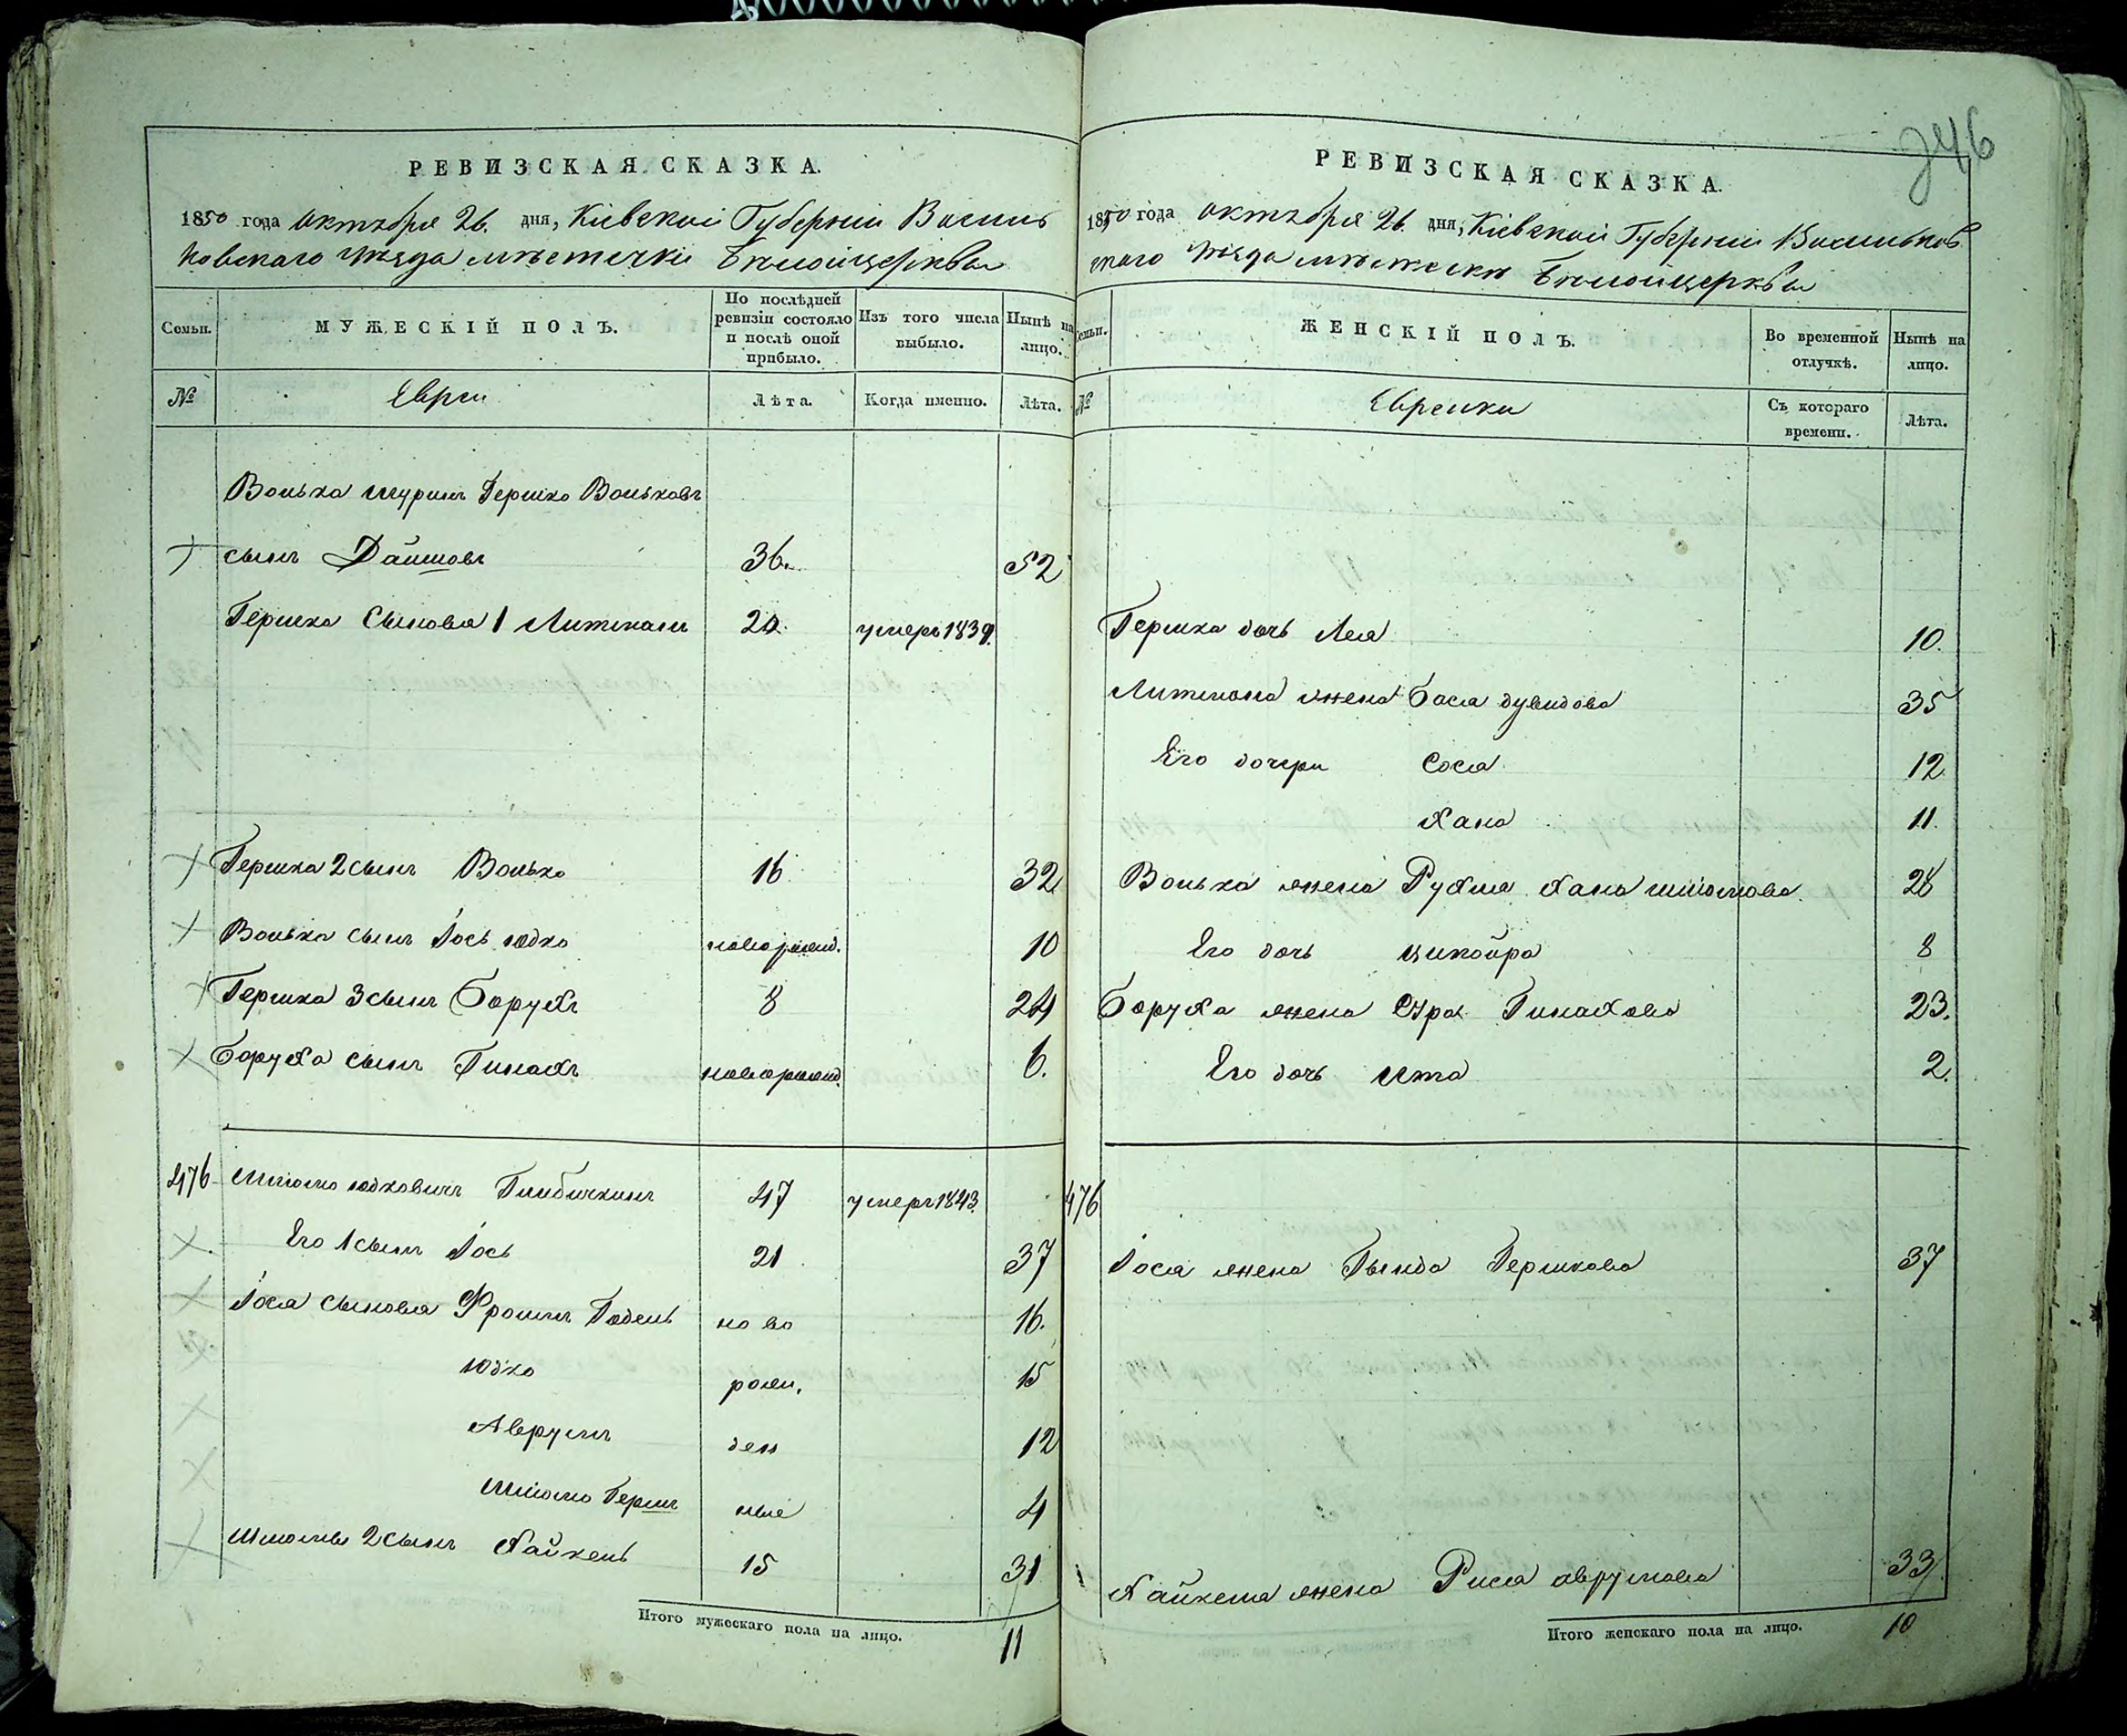 246
РЕВИЗСКАЯ СКАЗКА.
1850 года Октября 26. дня, Кіевской Губерніи Василь
ковскаго уѣзда мѣстечки Бѣлойцерквы
Семьи.
МУЖЕСКІЙ ПОЛЪ.
По послѣдней ревизіи состояло и послѣ оной прибыло.
Изъ того числа выбыло.
Нынѣ на лицо.
№
Евреи
Лѣта.
Когда именно.
Лѣта.
Волька шуринъ Гершко Вольковъ
сынъ Даишовъ 36. 52
Гершка сыновья 1 Литманъ 20. умеръ 1839.
Гершка 2 сынъ Волько 16 32
Волька сынъ Іось юдко новорожд. 10
Гершка 3 сынъ Борухъ 8 24
Боруха сынъ Пинахъ новорожд. 6.
476 Шліомо юдковичъ 47 умеръ 1843.
Его 1 сынъ Іось 21 37
Іося сыновья Фроимъ Годель ново 16.
Юдко рожн. 15
Аврумъ ден 12
Шліомо Гершъ ные 4
Шліомы 2 сынъ Хайкель 15 31
Итого мужескаго пола на лицо. 11
РЕВИЗСКАЯ СКАЗКА.
1850 года Октября 26. дня, Кіевской Губерніи Васильков
скаго уѣзда мѣстечки Бѣлойцерквы
Семьи.
ЖЕНСКІЙ ПОЛЪ.
Во временной отлучкѣ.
Нынѣ на лицо.
№
Еврейки
Съ котораго времени.
Лѣта.
Гершка дочь Лея 10.
Литмана жена Бася дувидова 35
Его дочери Сося 12
Хана 11.
Волька жена Рухля Хана шліомова 28
Его дочь ципойра 8
Боруха жена Сура Пинахова 23.
Его дочь Ита 2.
476
Іося жена Гында Гершкова 37
Хайкеля жена Рися аврумова 33
Итого женскаго пола на лицо. 10